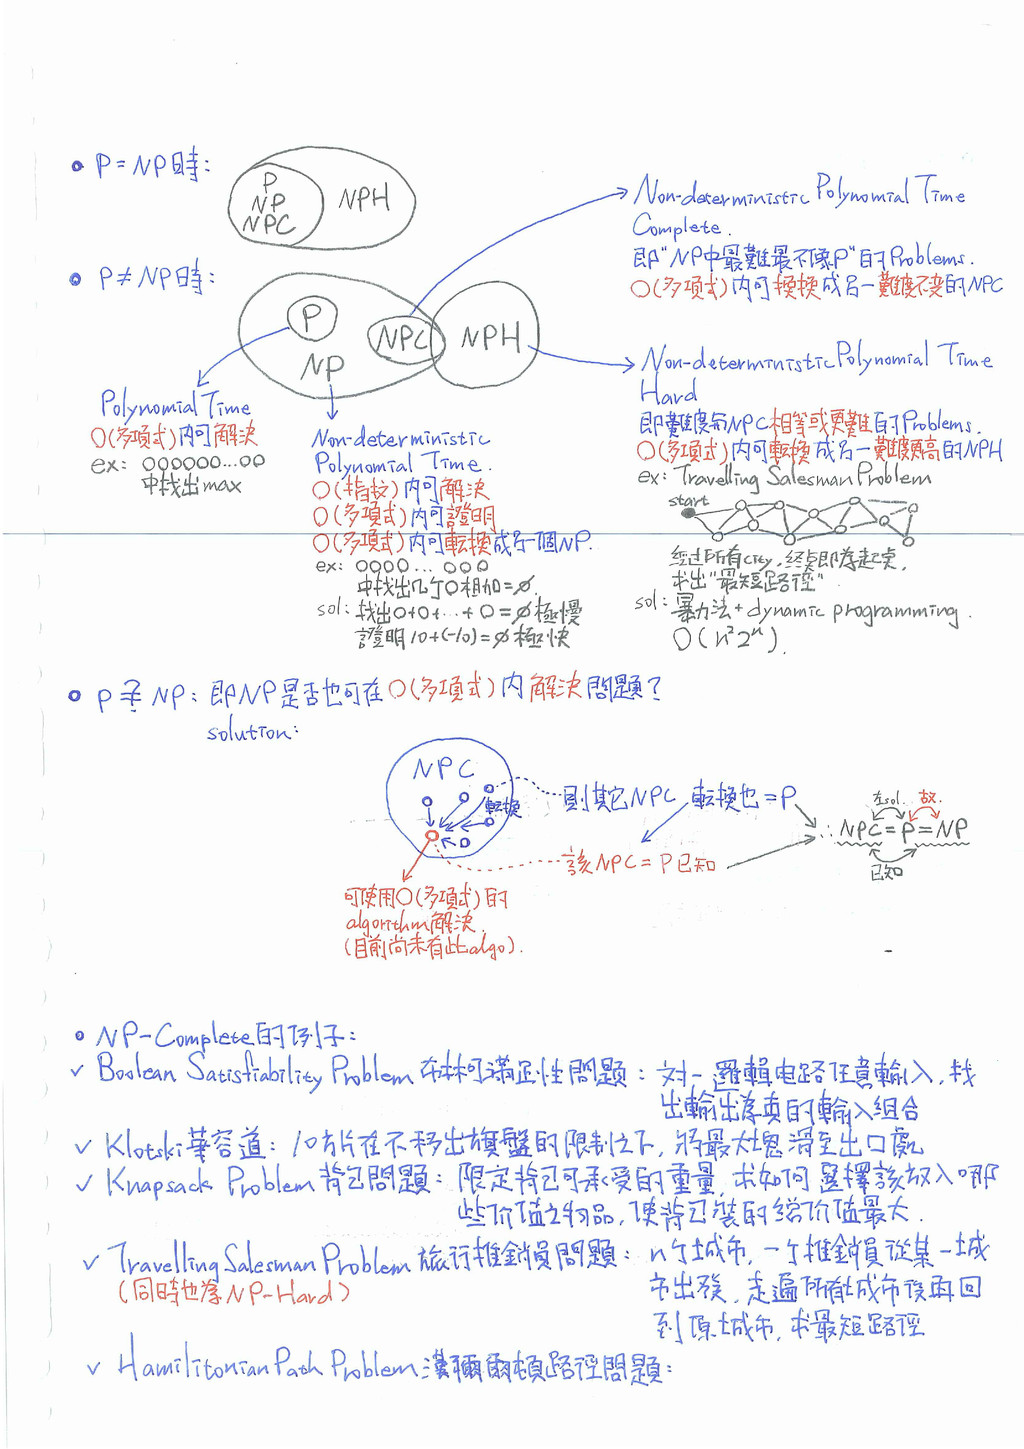 P = NP時:
P
NP
NPC
NPH
P ≠ NP時:
P
NP
NPC
NPH
Non-deterministic Polynomial Time
Complete.
即"NP中最難最不像P"的Problems.
O(多項式)內可換換成另一難度不变的NPC
Non-deterministic Polynomial Time
Hard
即難度布NPC相等或更難的Problems.
O(多項式)內可転換成另一難度更高的NPH
ex: Travelling Salesman Problem
start
經过所有city, 終点即為起桌,
求出"最短路徑"
sol: 暴力法+dynamic programming.
O(n²2ⁿ).
Polynomial Time
O(多項式)內可解決
ex: OOOOOO...OO
中找出max
Non-deterministic
Polynomial Time.
O(指数)內可解決
O(多項式)內可證明
O(多項式)內可転換成另一個NP.
ex: OOOO... OOO
中找出几个O相加=∅.
sol: 找出O+O+...+O=∅極慢
證明10+(-10)=∅極快
P ≟ NP: 即NP是否也可在O(多項式)內解決問題?
solution:
NPC
転換
則其它NPC 転換也=P
該NPC=P已知
左sol. 故.
∴ NPC=P=NP
已知
可使用O(多項式)的
algorithm解決.
(目前尚未有此algo).
NP-Complete的例子:
✓ Boolean Satisfiability Problem 布林可滿足性問題: 对一邏輯电路任意輸入, 找
出輸出為真的輸入組合
✓ Klotski華容道: 10方片在不移出旗盤的限制之下, 將最大塊滑至出口處
✓ Knapsack Problem背包問題: 限定背包可承受的重量, 求如何選擇該放入哪
些价值之物品, 使背包裝的總价值最大.
✓ Travelling Salesman Problem旅行推銷員問題: n个城市, 一个推銷員從某一城
(同時也為NP-Hard)
市出發, 走遍所有城市後再回
到原城市, 求最短路徑
✓ Hamilitonian Path Problem漢彌爾頓路徑問題: